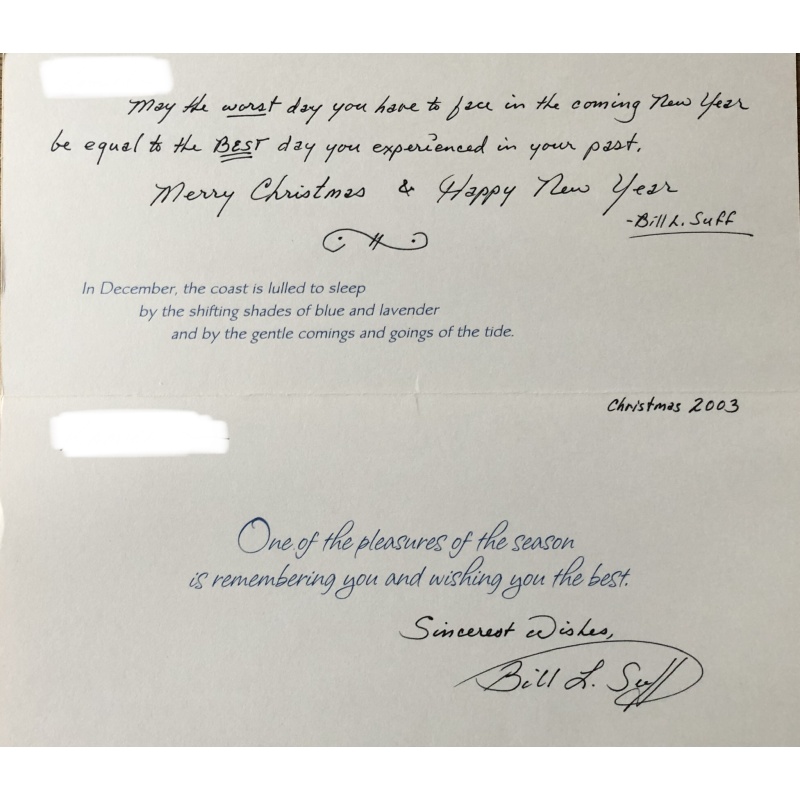 May the worst day you have to face in the coming New Year
be equal to the BEST day you experienced in your past.
Merry Christmas & Happy New Year
-Bill L. Suff
In December, the coast is lulled to sleep
by the shifting shades of blue and lavender
and by the gentle comings and goings of the tide.
Christmas 2003
One of the pleasures of the season
is remembering you and wishing you the best.
Sincerest Wishes,
Bill L. Suff